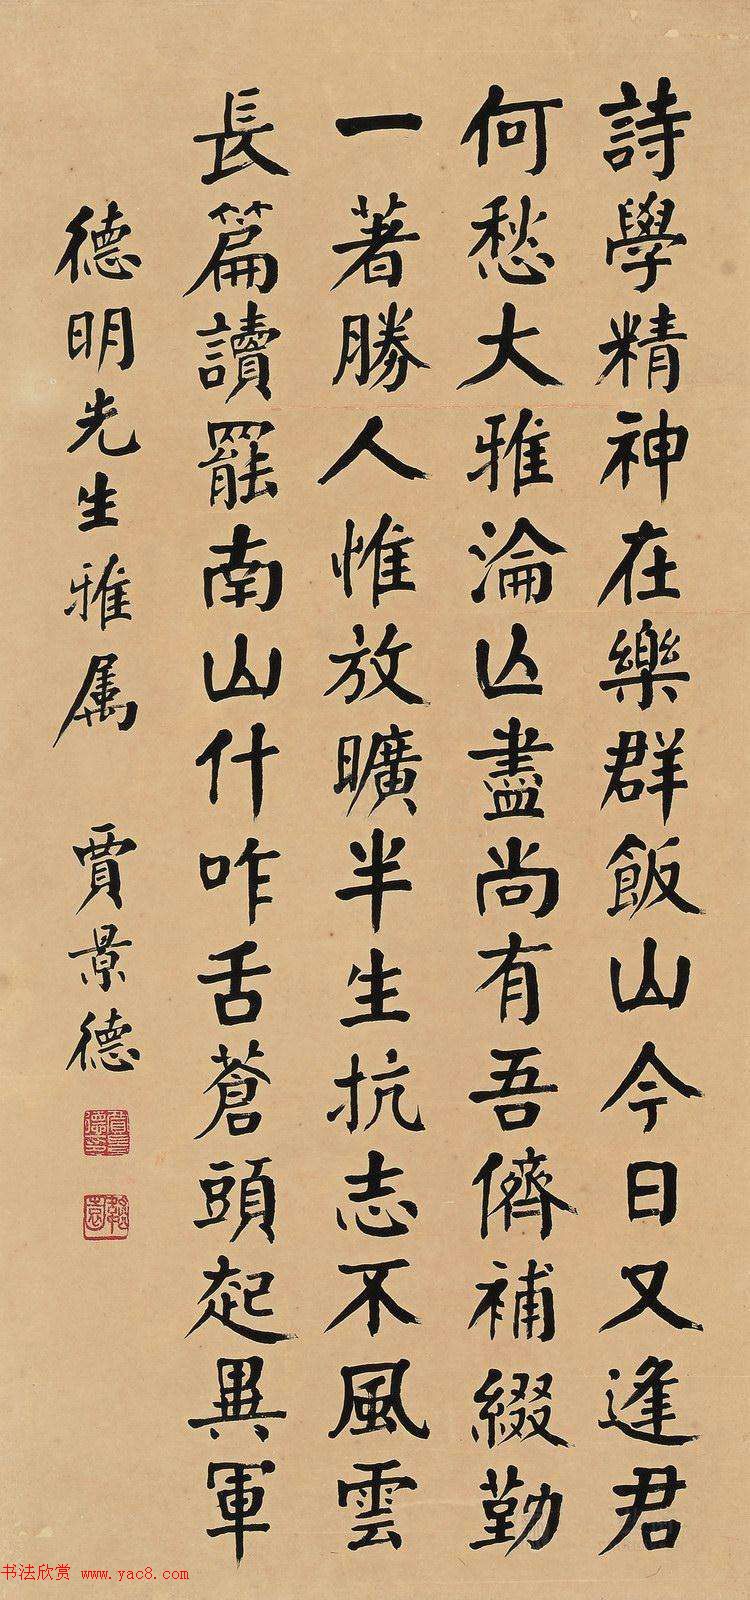 詩學精神在樂群飯山今日又逢君
何愁大雅淪亾盡尚有吾儕補綴勤
一著勝人惟放曠半生抗志不風雲
長篇讀罷南山什咋舌蒼頭起異軍
德明先生雅属 賈景德
书法欣赏 www.yac8.com